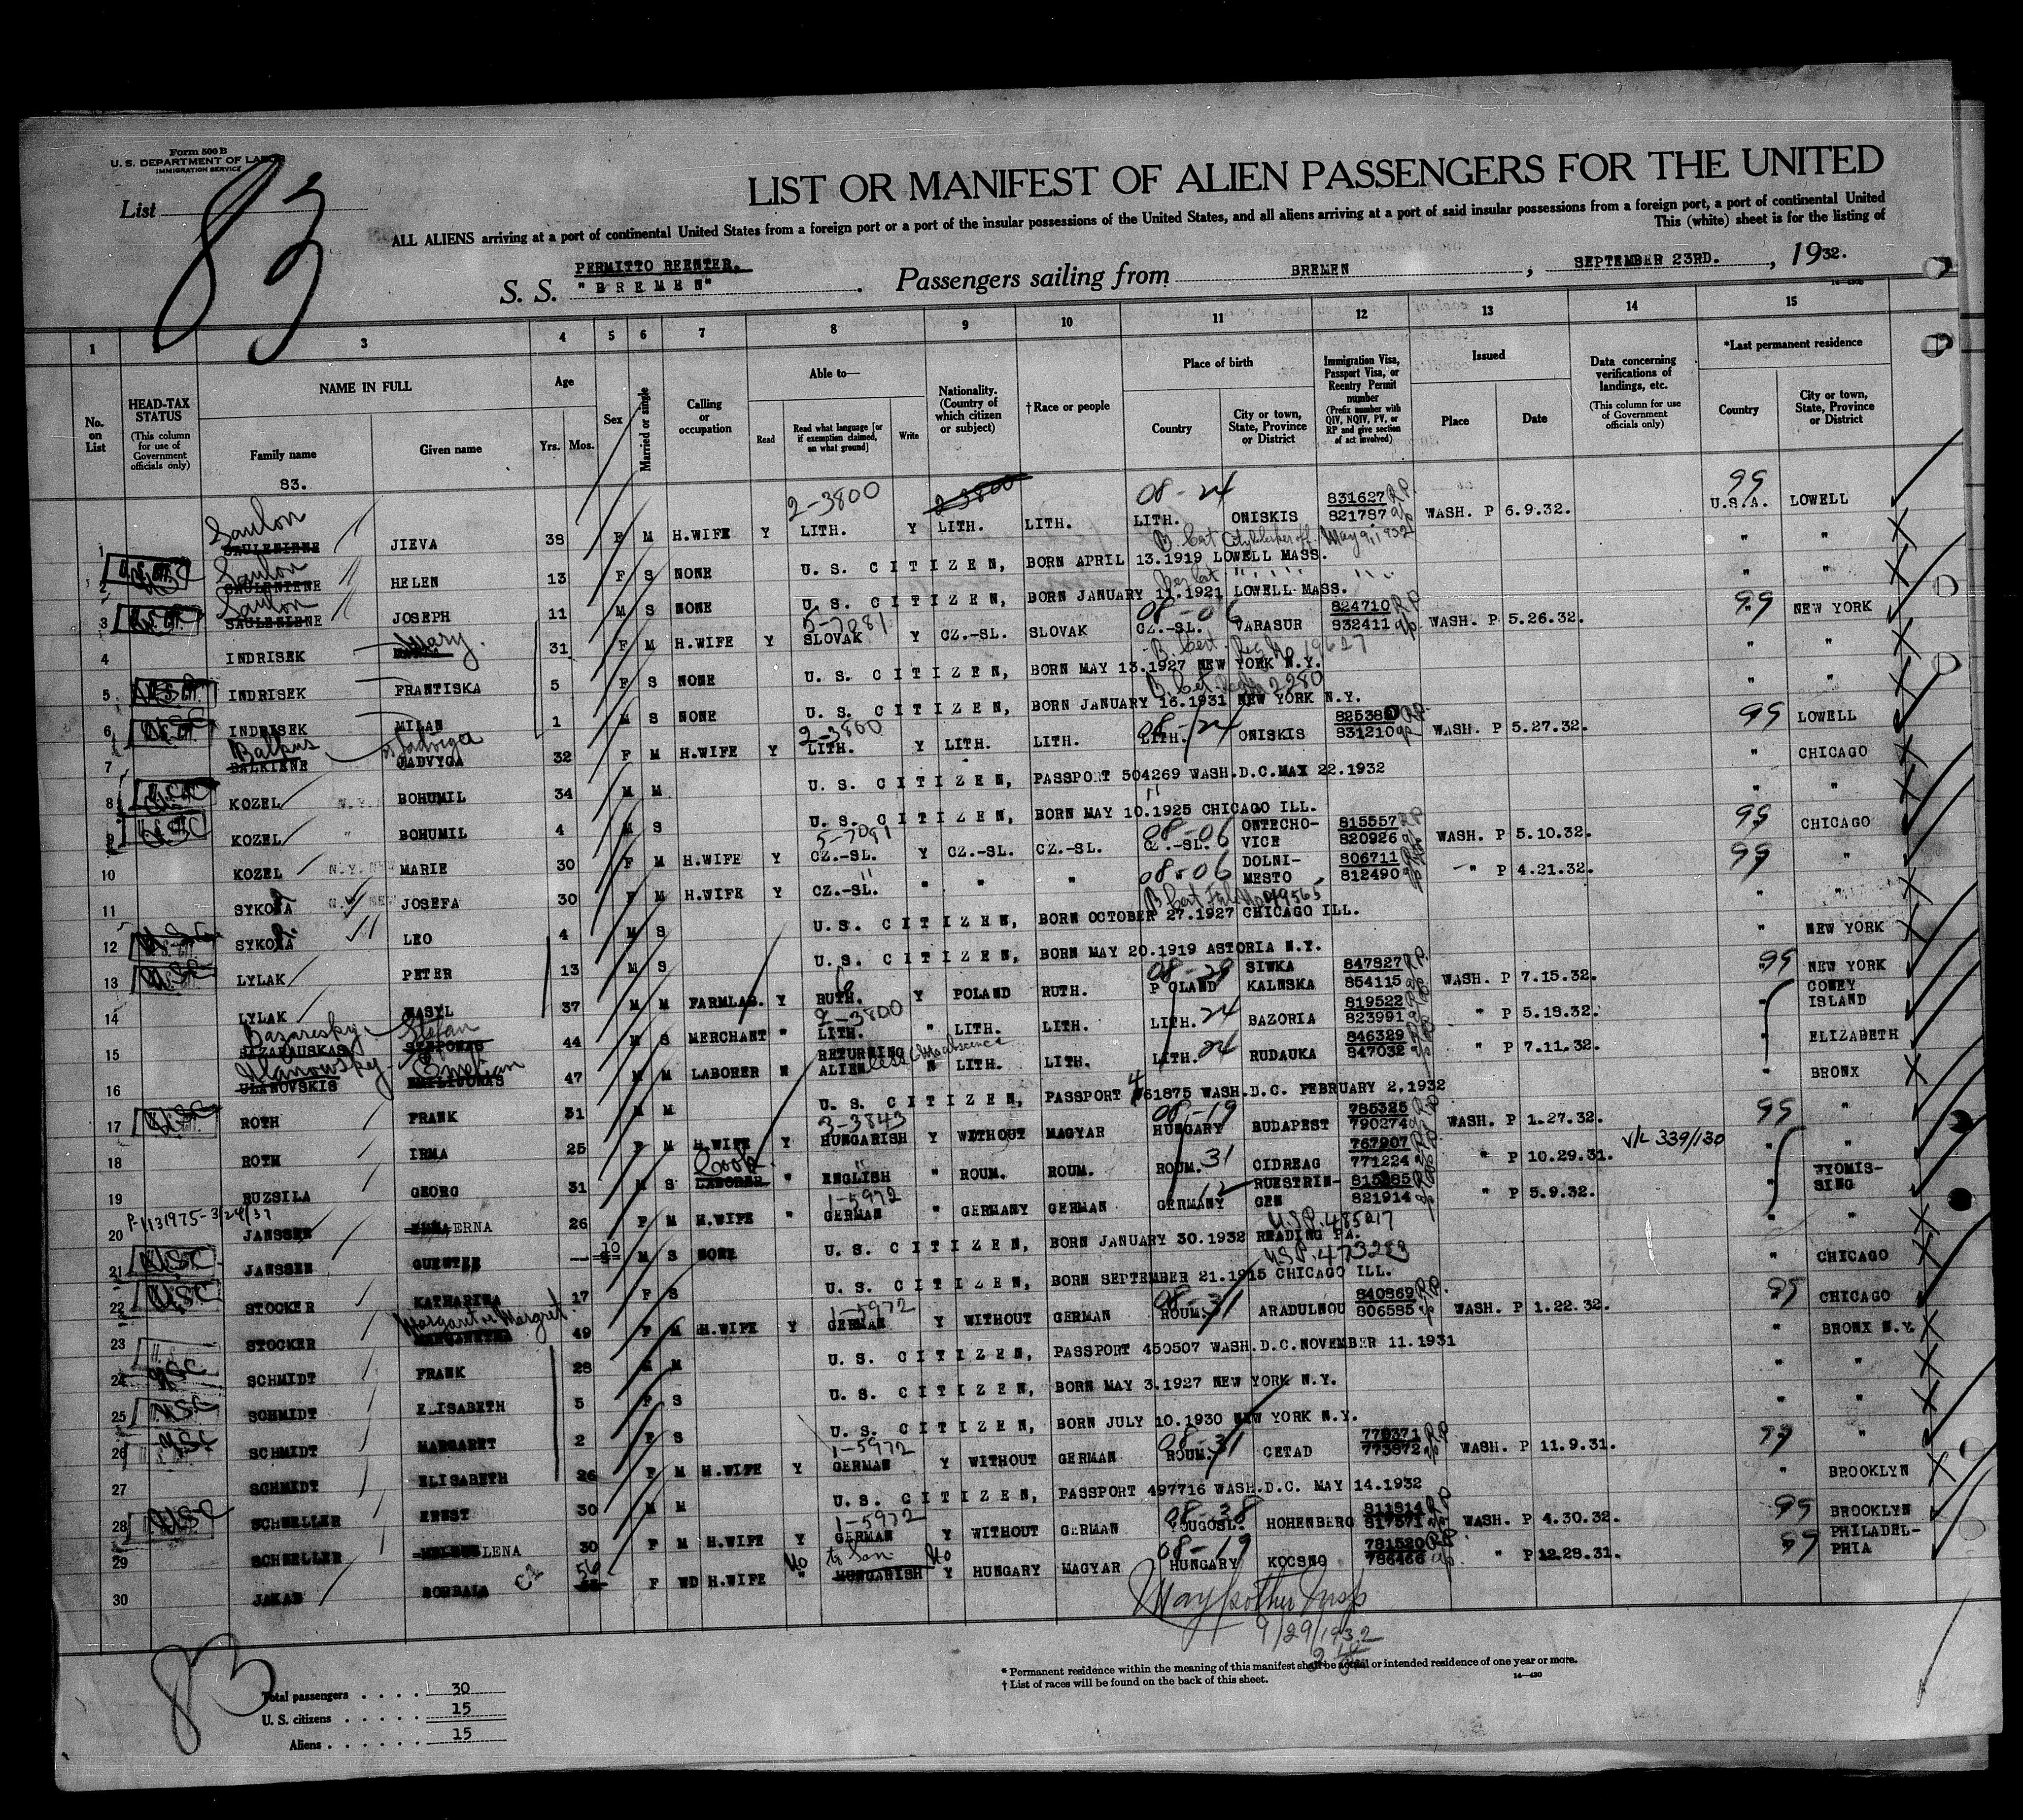 Form 500 B
U. S. DEPARTMENT OF LABOR
IMMIGRATION SERVICE
List 83
LIST OR MANIFEST OF ALIEN PASSENGERS FOR THE UNITED
ALL ALIENS arriving at a port of continental United States from a foreign port or a port of the insular possessions of the United States, and all aliens arriving at a port of said insular possessions from a foreign port, a port of continental United
This (white) sheet is for the listing of
PERMITTO REENTER.
S. S. "BREMEN" Passengers sailing from BREMEN, SEPTEMBER 23RD., 1932.
1 3 4 5 6 7 8 9 10 11 12 13 14 15
No. on List
HEAD-TAX STATUS (This column for use of Government officials only)
NAME IN FULL Family name Given name
Age Yrs. Mos.
Sex
Married or single
Calling or occupation
Able to— Read Read what language [or if exemption claimed, on what ground] Write
Nationality. (Country of which citizen or subject)
†Race or people
Place of birth Country City or town, State, Province or District
Immigration Visa, Passport Visa, or Reentry Permit number (Prefix number with QIV, NQIV, PV, or RP and give section of act involved)
Issued Place Date
Data concerning verifications of landings, etc. (This column for use of Government officials only)
*Last permanent residence Country City or town, State, Province or District
83.
1 Saulon SAULENIENE JIEVA 38 F M H.WIFE Y 2-3800 LITH. Y 2-3800 LITH. LITH. 08-24 LITH. ONISKIS 831627 821787 RP WASH. P 6.9.32. 99 U.S.A. LOWELL
2 USC Saulon SAULENIENE HELEN 13 F S NONE U. S. CITIZEN, BORN APRIL 13.1919 LOWELL MASS. May 9, 1932 " "
3 USC Saulon SAULENIENE JOSEPH 11 M S NONE U. S. CITIZEN, BORN JANUARY 11.1921 LOWELL MASS. " "
4 INDRISEK Mary 31 F M H.WIFE Y 5-7081 SLOVAK Y CZ.-SL. SLOVAK 08-06 CZ.-SL. VARASUR 824710 832411 RP WASH. P 5.26.32. 99 NEW YORK
5 USC INDRISEK FRANTISKA 5 F S NONE U. S. CITIZEN, BORN MAY 13.1927 NEW YORK N.Y. B. Cert. Reg No 19627 " "
6 USC INDRISEK MILAN 1 M S NONE U. S. CITIZEN, BORN JANUARY 16.1931 NEW YORK N.Y. " "
7 Balkus BALKIENE Jadviga JADVYGA 32 F M H.WIFE Y 2-3800 LITH. Y LITH. LITH. 08-24 LITH. ONISKIS 831210 RP WASH. P 5.27.32. 99 LOWELL
8 USC KOZEL N.Y. BOHUMIL 34 M M U. S. CITIZEN, PASSPORT 504269 WASH.D.C.MAY 22.1932 " CHICAGO
9 USC KOZEL " BOHUMIL 4 M S U. S. CITIZEN, BORN MAY 10.1925 CHICAGO ILL. " "
10 KOZEL N.Y. MARIE 30 F M H.WIFE Y 5-7081 CZ.-SL. Y CZ.-SL. CZ.-SL. 08-06 CZ.-SL. ONTECHO-VICE 815557 820926 RP WASH. P 5.10.32. 99 CHICAGO
11 SYKORA JOSEFA 30 F M H.WIFE Y " CZ.-SL. " " " 08-06 DOLNI-MESTO 806711 812490 " P 4.21.32. 99 "
12 USC SYKORA LEO 4 M S U. S. CITIZEN, BORN OCTOBER 27.1927 CHICAGO ILL. " "
13 USC LYLAK PETER 13 M S U. S. CITIZEN, BORN MAY 20.1919 ASTORIA N.Y. " NEW YORK
14 LYLAK WASYL 37 M M FARMLAB. Y RUTH. Y POLAND RUTH. 08-29 POLAND SIWKA KALNSKA 847827 854115 RP WASH. P 7.15.32. 99 NEW YORK
15 Bazaresky BAZARAUSKAS Stefan STEPONAS 44 M S MERCHANT " 2-3800 LITH. " LITH. LITH. LITH. 24 BAZORIA 819522 823991 " P 5.18.32. CONEY ISLAND
16 Ulanowsky ULANOVSKIS Emilian EMILIJONAS 47 M M LABORER N RETURNING ALIEN less 6 Mo absence N LITH. LITH. LITH. 24 RUDAUKA 846329 847032 " P 7.11.32. ELIZABETH
17 USC ROTH FRANK 31 M M U. S. CITIZEN, PASSPORT 461875 WASH.D.C. FEBRUARY 2.1932 " BRONX
18 ROTH IRMA 25 F M H.WIFE Y 3-3843 HUNGARISH Y WITHOUT MAGYAR 08-19 HUNGARY BUDAPEST 785325 790274 WASH. P 1.27.32. 99 "
19 RUZSILA GEORG 31 M S Cook LABORER " " ENGLISH " ROUM. ROUM. ROUM. 31 CIDREAG 767907 771224 " P 10.29.31. V/L 339/130 "
20 P-1131975-3/24/37 JANSSEN ERNA 26 F M H.WIFE " 1-5972 GERMAN " GERMANY GERMAN GERMANY 12 RUESTRIN-GEN 821914 " P 5.9.32. WYOMIS-SING
21 USC JANSSEN GUENTER 10 M S NONE U. S. CITIZEN, BORN JANUARY 30.1932 READING PA. U.S.P. 485017 " "
22 USC STOCKER KATHARINA 17 F S U. S. CITIZEN, BORN SEPTEMBER 21.1915 CHICAGO ILL. U.S.P. 473283 " CHICAGO
23 STOCKER Margaret or Margret 49 F M H.WIFE Y 1-5972 GERMAN Y WITHOUT GERMAN 08-31 ROUM. ARADULNOU 840869 806585 RP WASH. P 1.22.32. 95 CHICAGO
24 USC SCHMIDT FRANK 28 M M U. S. CITIZEN, PASSPORT 450507 WASH.D.C.NOVEMBER 11.1931 " BRONX N.Y.
25 USC SCHMIDT ELISABETH 5 F S U. S. CITIZEN, BORN MAY 3.1927 NEW YORK N.Y. " "
26 USC SCHMIDT MARGARET 2 F S U. S. CITIZEN, BORN JULY 10.1930 NEW YORK N.Y. " "
27 SCHMIDT ELISABETH 26 F M H.WIFE Y 1-5972 GERMAN Y WITHOUT GERMAN 08-31 ROUM. CETAD 773872 RP WASH. P 11.9.31. 99 "
28 USC SCHNELLER ERNST 30 M M U. S. CITIZEN, PASSPORT 497716 WASH.D.C. MAY 14.1932 " BROOKLYN
29 SCHNELLER LENA 30 F M H.WIFE Y 1-5972 GERMAN Y WITHOUT GERMAN 08-38 YOUGOSL. HOHENBERG 811814 817571 WASH. P 4.30.32. 99 BROOKLYN
30 JAKAB BORBALA 56 F WD H.WIFE No to Son HUNGARISH No Y HUNGARY MAGYAR 08-19 HUNGARY KOCSNO 781520 786466 " P 12.28.31. 99 PHILADEL-PHIA
9/29/1932
83
* Permanent residence within the meaning of this manifest shall be actual or intended residence of one year or more.
† List of races will be found on the back of this sheet.
14—430
Total passengers . . . . 30
U. S. citizens . . . . . 15
Aliens . . . . . . 15